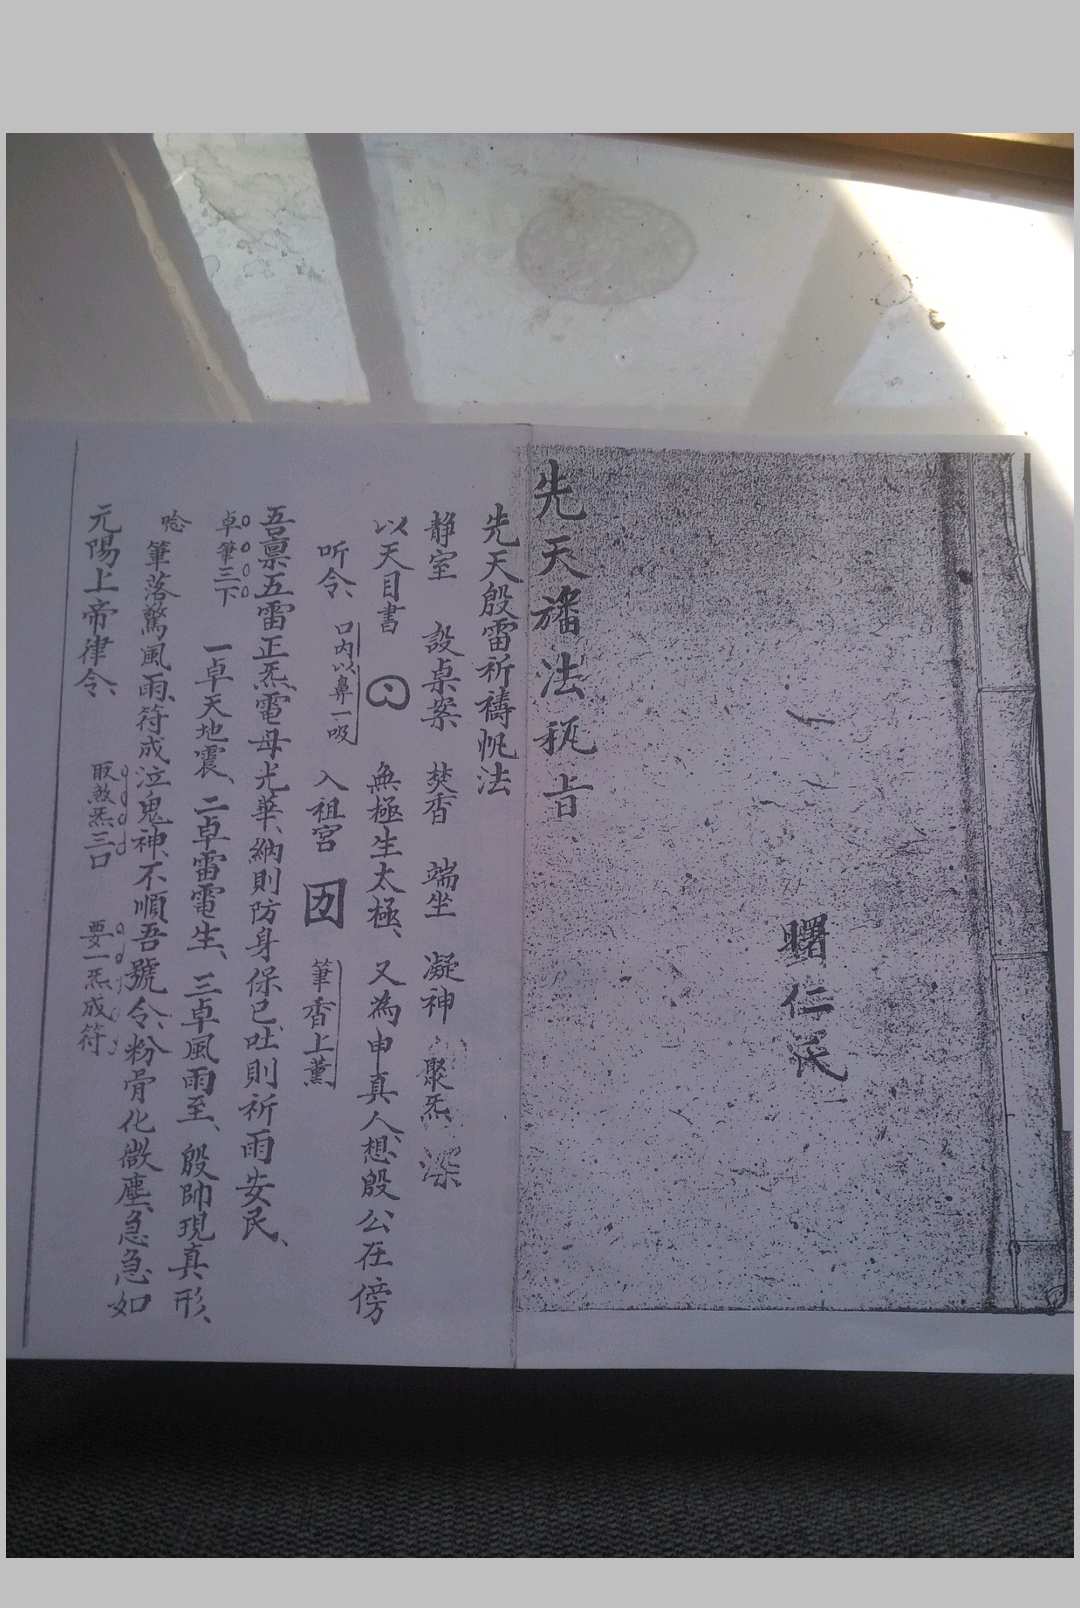 先天旛法秘旨
曙仁氏
先天殷雷祈禱帆法
静室 設桌案 焚香 端坐 凝神 聚炁
以天目書 無極生太極、又為申真人、想殷公在傍
听令、口内以鼻一吸 入祖宮 筆香上薰
吾禀五雷正炁電母光華、納則防身保已、吐則祈雨安民、
卓筆三下 一卓天地震、二卓雷電生、三卓風雨至、殷帥現真形、
唸 筆落驚風雨、符成泣鬼神、不順吾號令、粉骨化微塵、急急如
元陽上帝律令、 取煞炁三口 要一炁成符